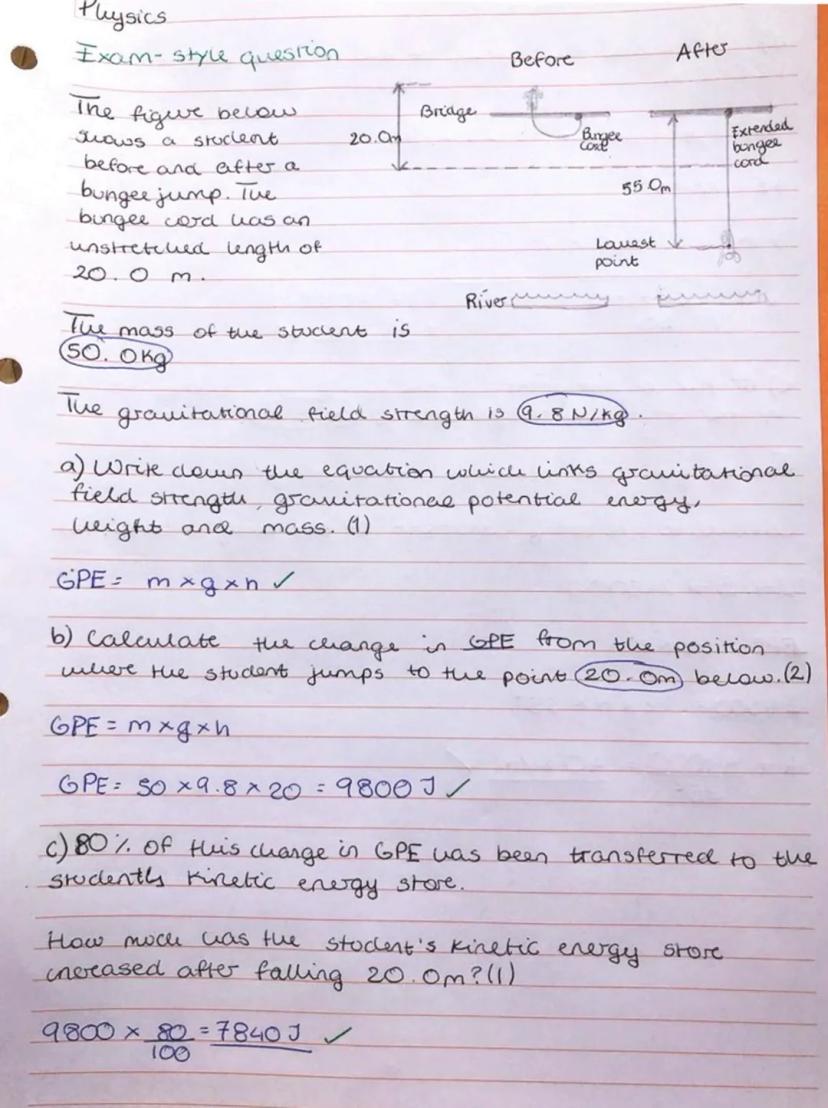 Physics
Exam-style question
Before
After
The figure below
shows a student
before and after a
bungee jump. The
bungee cord has an
unstretched length of
20.0 m.
20.0m
Bridge
Bungee
Cord
Extended
bungee
cord
55.0m
Lowest
point
River
The mass of the student is
50.0kg
The gravitational field strength is 9.8 N/kg.
a) Write down the equation which links gravitational
field strength, gravitational potential energy,
height and mass. (1)
GPE = m × g × h ✓
b) Calculate the change in GPE from the position
where the student jumps to the point 20.0m below. (2)
GPE = m × g × h
GPE = 50 × 9.8 × 20 = 9800 J ✓
c) 80% of this change in GPE has been transferred to the
student's kinetic energy store.
How much has the student's kinetic energy store
increased after falling 20.0m? (1)
9800 × 80/100 = 7840 J ✓